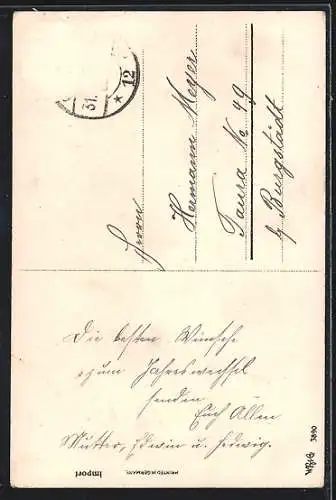 Die besten Wünsche
zum Jahreswechsel
senden
Euch Allen
Mutter, Edwin u. Hedwig.
Herrn
Hermann Meyer
Taura No 49
b/ Burgstädt
31.
* 12
PRINTED IN GERMANY
Import
3890